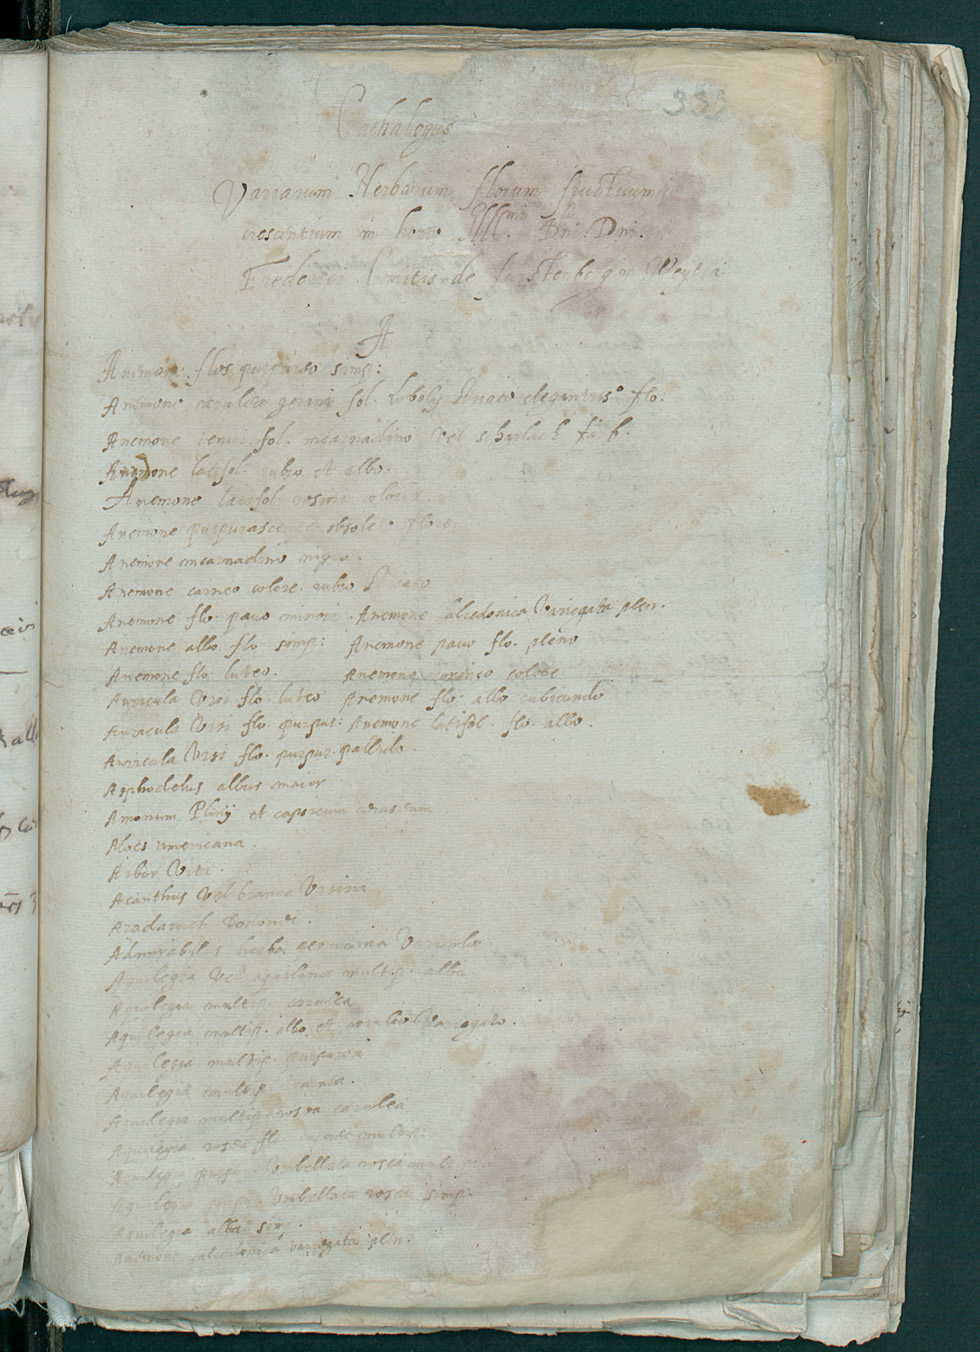 333
Cathalogus
Variarum Herbarum florum fructuum
crescentium in horto Illmi. Dni. Dni.
Frederici Comitis de Furstenberg in
A
Anemone flos purpureo simp:
Anemone caeruleo geranii fol. Lobelij elegantiss° flo:
Anemone tenui fol. incarnadino vel scharlach farb.
Anemone latifol. rubro et albo.
Anemone latifol
Anemone purpurascente obsoleto flore.
Anemone incarnadino nigro.
Anemone carneo colore rubro
Anemone flo pavo minori. Anemone calcedonica variegata plen.
Anemone albo flo simp: Anemone pavo flo. pleno
Anemone flo luteo. Anemone colore
Auricula Ursi flo. luteo Anemone flo. albo rubicundo
Auricula Ursi flo purpur: Anemone latifol. flo. albo.
Auricula Ursi flo. purpur. pallido.
Asphodelus albus maior
Amonum Plinij et capsicum
Aloes americana.
Arbor Vitae.
Acanthus Vel branca Ursina
Azadarach Dodonei.
Admirabilis herba peruviana
Aquilegia Vel aquilina multip. alba
Aquilegia multip. caerulea
Aquilegia multip. albo et caeruleo variegato.
Aquilegia multip. purpurea
Aquilegia multip. carnea.
Aquilegia multip. rosea caerulea
Aquilegia rosea flo multip:
Aquilegia Umbellata rosea multip
Aquilegia Umbellata rosea simp.
Aquilegia alba simp.
Anemone calcedonica variegata plen.